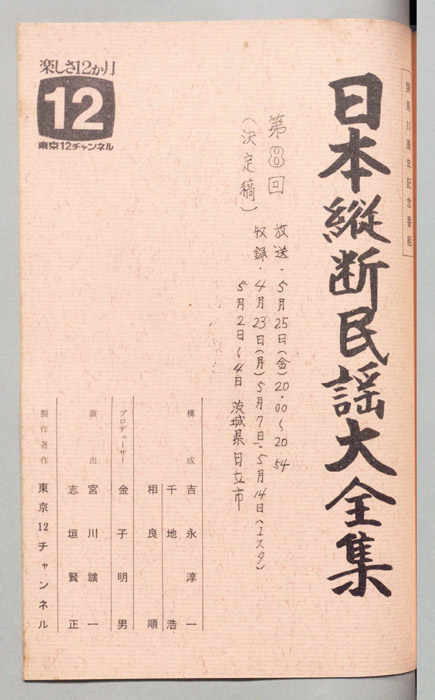 開局10周年記念番組
日本縦断民謡大全集
楽しさ12か月
12
東京12チャンネル
第8回
(決定稿)
放送・5月25日(金)20.00〜20.54
収録・4月23日(月)5月7日・5月14日(1スタ)
5月2日〜4日 茨城県日立市
構成 吉永淳一
千地浩
相良順
プロデューサー 金子明男
演出 宮川鑛一
志垣賢正
製作著作 東京12チャンネル